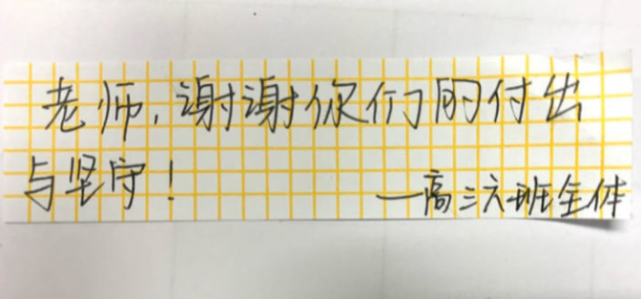 老师,谢谢你们的付出
与坚守!
—高三六班全体